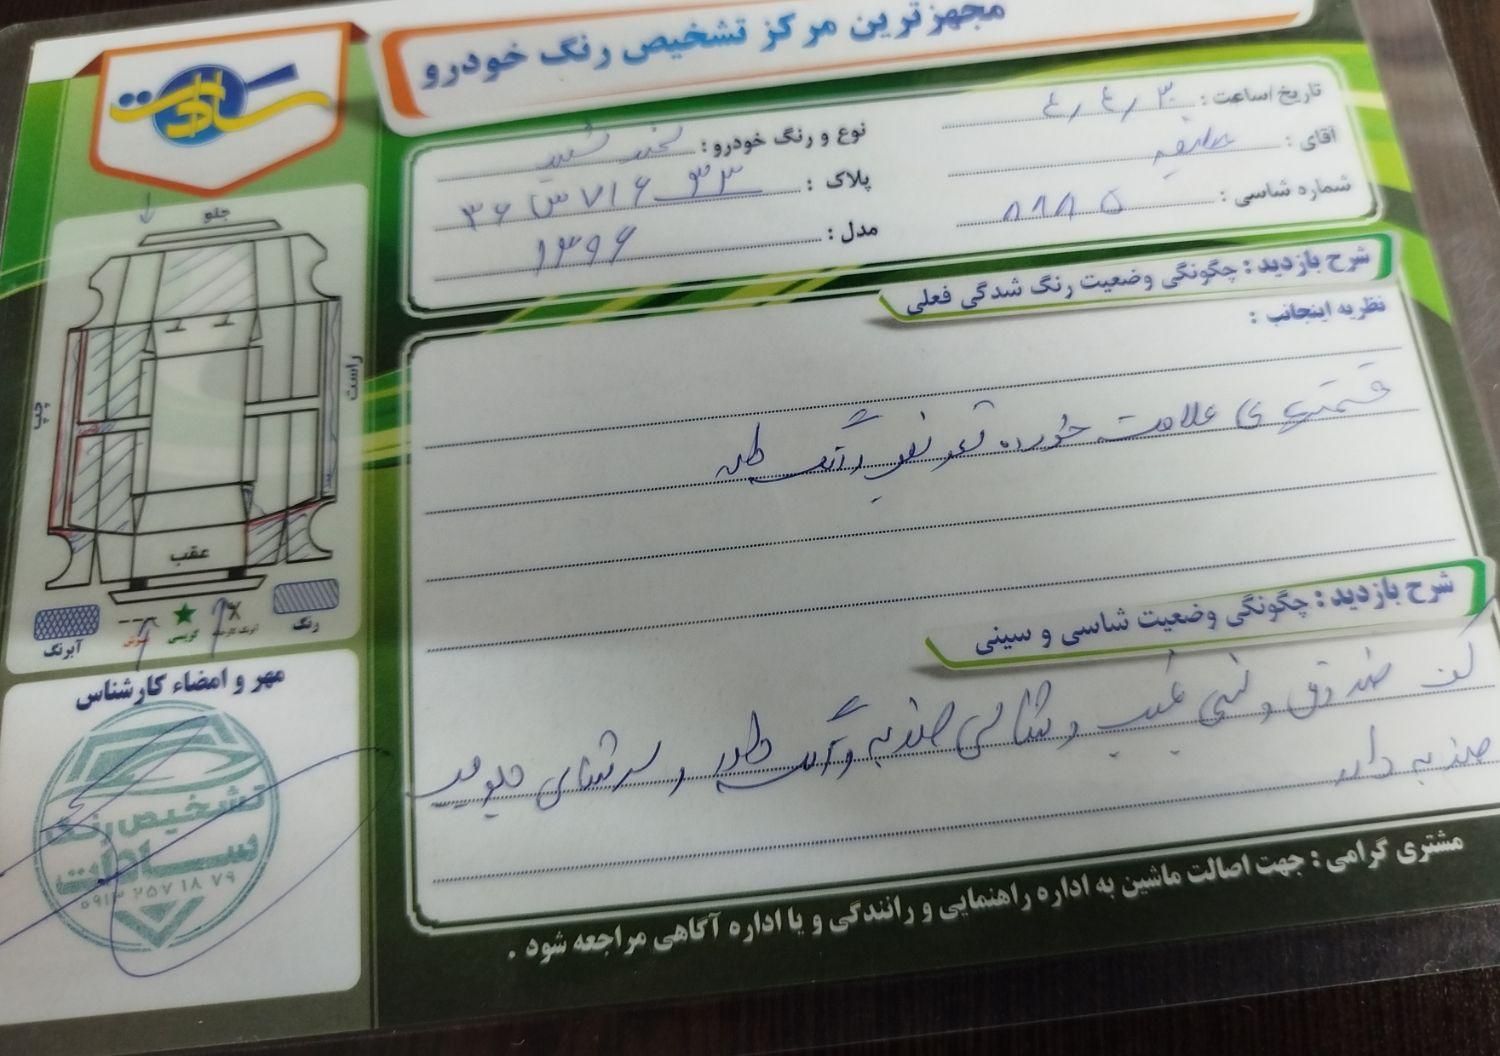 مجهزترین مرکز تشخیص رنگ خودرو
سادات
تاریخ/ساعت : ۴٫۴٫۳۰
نوع و رنگ خودرو : سفید
آقای :
پلاک : ۳۳ ۷۱۶ س ۳۶
شماره شاسی : ۸۹۸۵
مدل : ۱۳۹۶
شرح بازدید : چگونگی وضعیت رنگ شدگی فعلی
نظریه اینجانب :
قسمتهای علامت خورده تعویض و رنگ
شرح بازدید : چگونگی وضعیت شاسی و سینی
کف صندوق و سینی عقب و شاسی ضربه و رنگ دارد و سرشاسی جلو
ضربه دارد
مشتری گرامی : جهت اصالت ماشین به اداره راهنمایی و رانندگی و یا اداره آگاهی مراجعه شود .
جلو
راست
چپ
عقب
رنگ
آبرنگ
مهر و امضاء کارشناس
تشخیص رنگ
سادات
۰۹۱۳ ۲۵۷ ۱۸ ۷۹